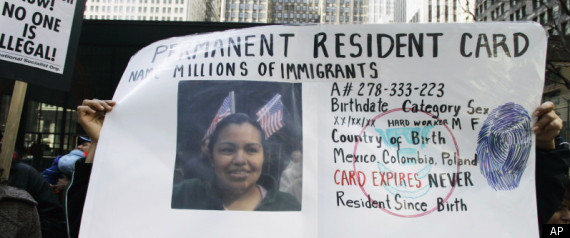 NOW!
NO ONE IS
ILLEGAL!
International Socialist Org
PERMANENT RESIDENT CARD
NAME MILLIONS OF IMMIGRANTS
A# 278-333-223
Birthdate Category Sex
XX/XX/XX HARD WORKER M F
Country of Birth
Mexico, Colombia, Poland
CARD EXPIRES NEVER
Resident Since Birth
AP